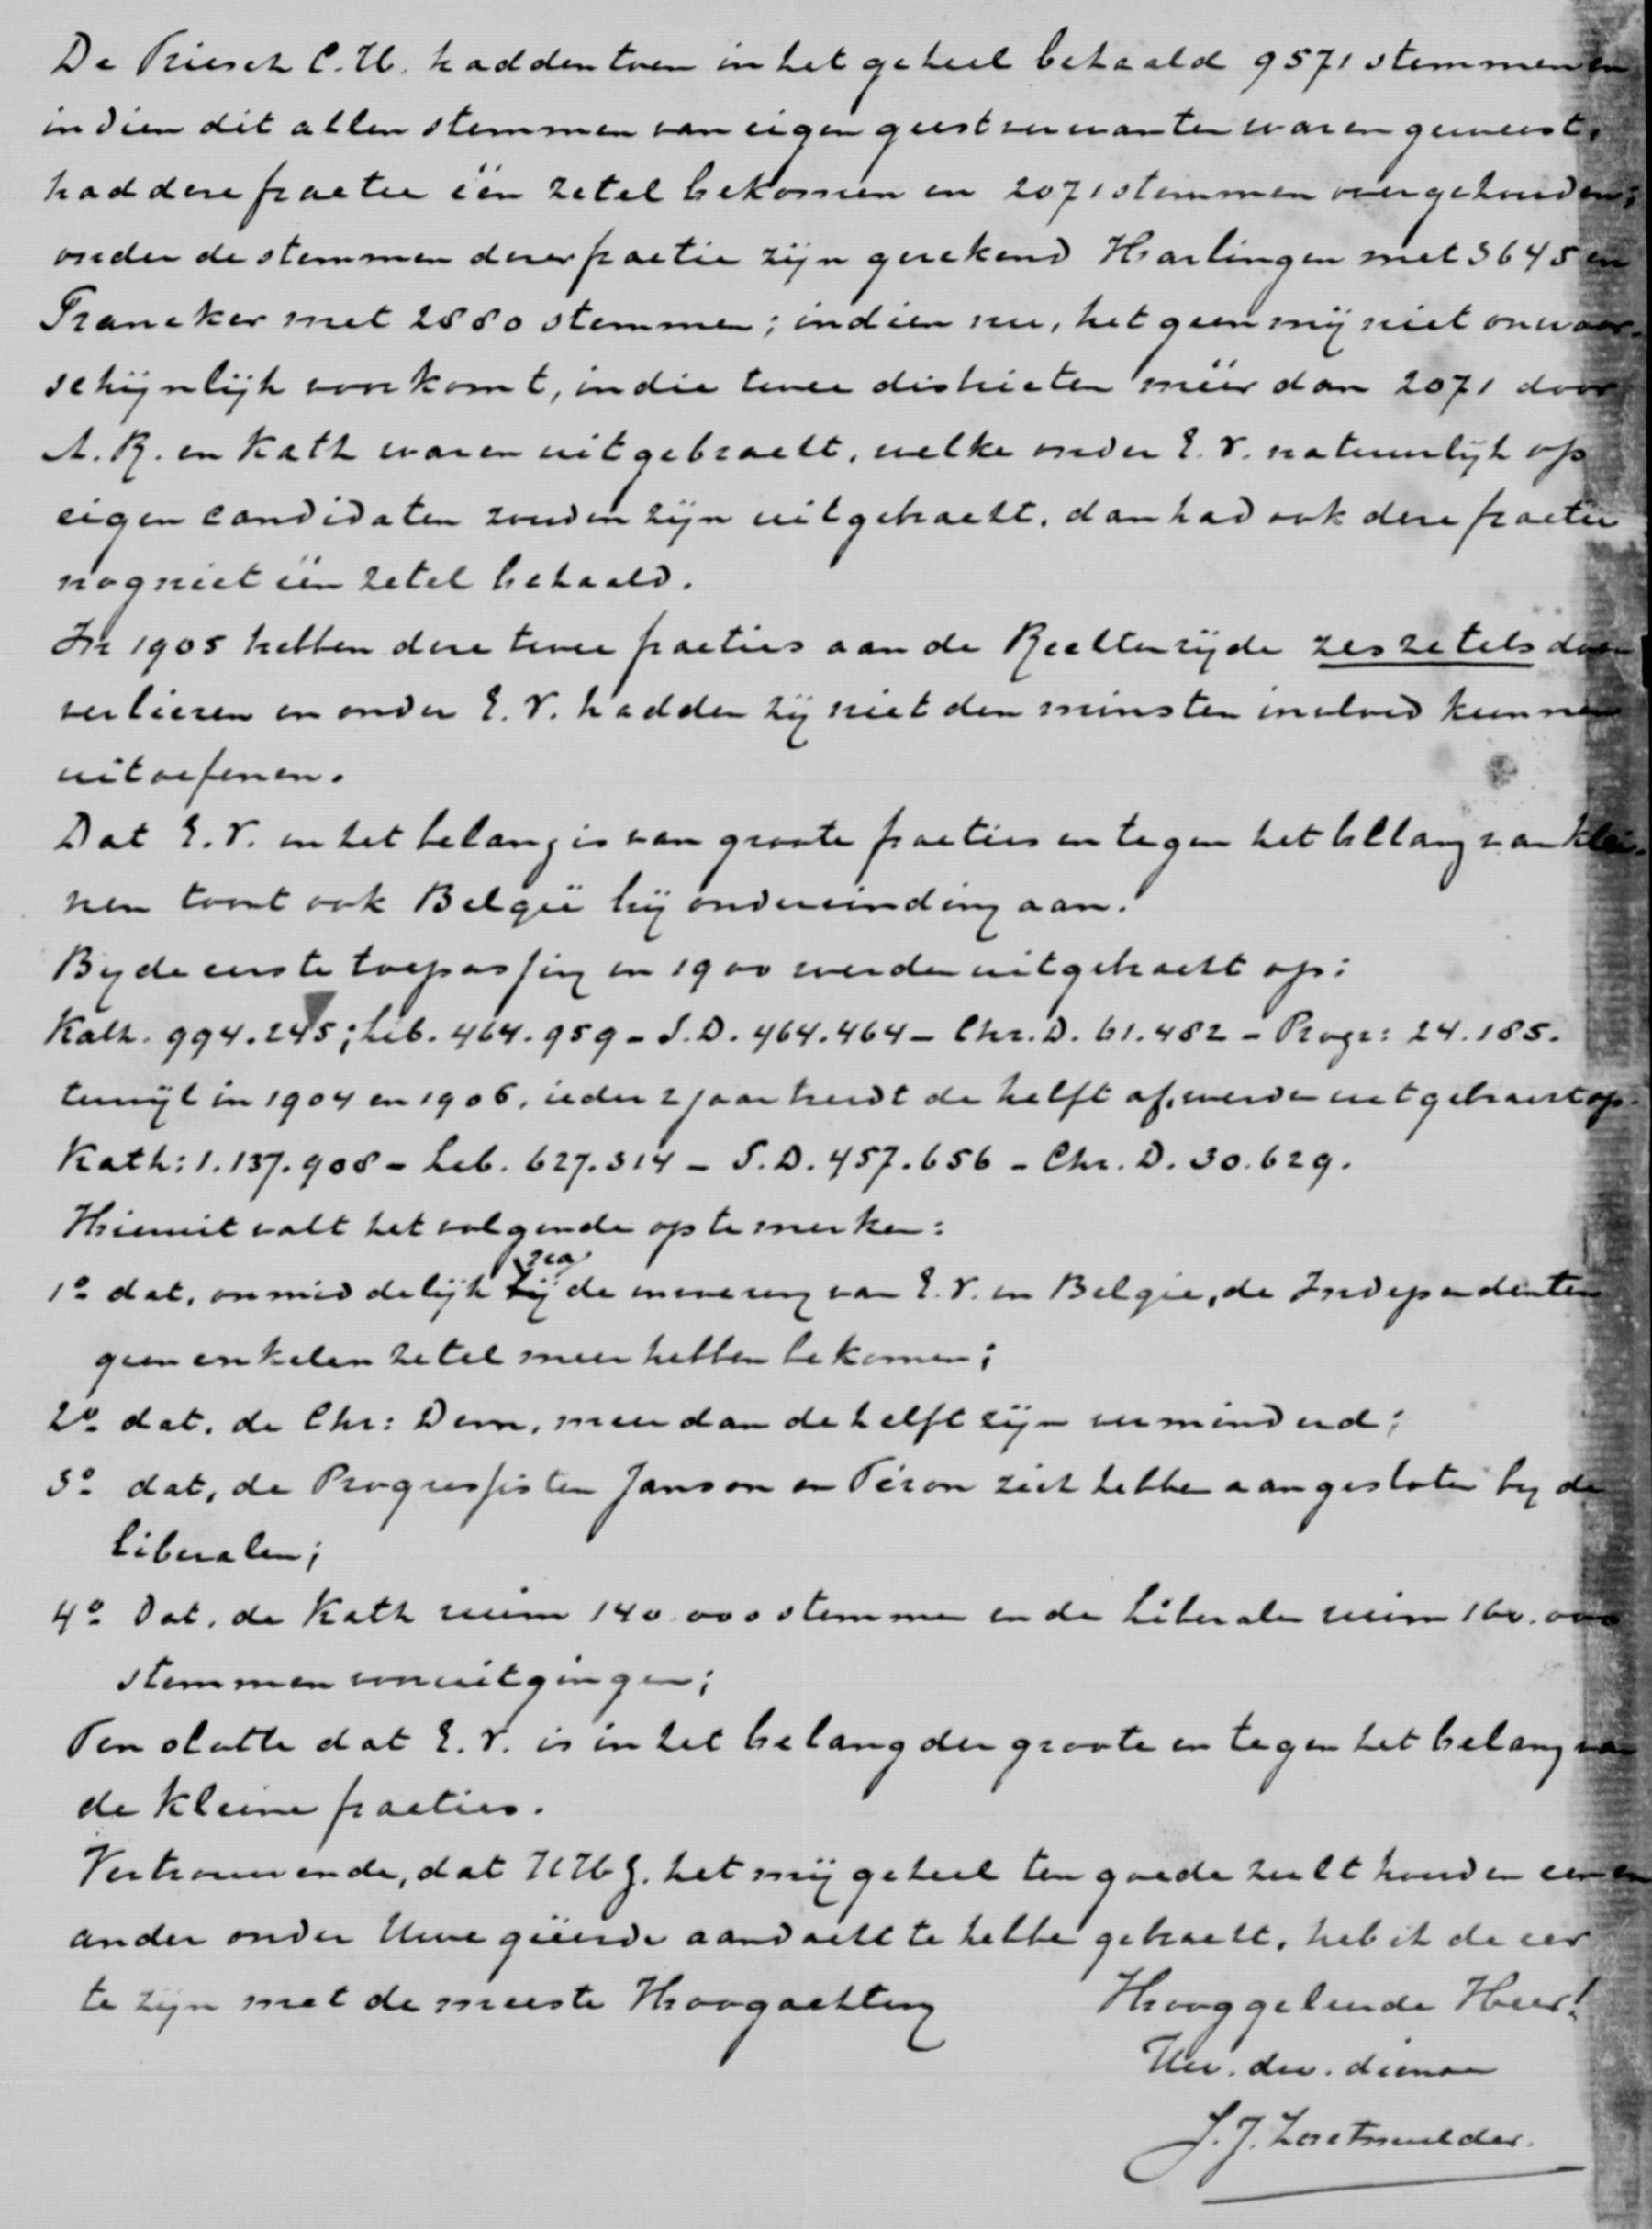 De Friesch C.H. hadden toen in het geheel behaald 9571 stemmen en
indien dit allen stemmen van eigen geestverwanten waren geweest,
had deze fractie één zetel bekomen en 2071 stemmen overgehouden;
onder de stemmen dezer fractie zijn gerekend Harlingen met 3645 en
Franeker met 2880 stemmen; indien nu, hetgeen mij niet onwaar-
schijnlijk voorkomt, in die twee districten méér dan 2071 door
A.R. en Kath waren uitgebracht, welke onder E.V. natuurlijk op
eigen candidaten zouden zijn uitgebracht, dan had ook deze fractie
nog niet één zetel behaald.
In 1905 hebben deze twee fracties aan de Rechterzijde zes zetels doen
verliezen en onder E.V. hadden zij niet den minsten invloed kunnen
uitoefenen.
Dat E.V. in het belang is van groote fracties en tegen het belang van klei-
nen toont ook België bij ondervinding aan.
By de eerste toepassing in 1900 werden uitgebracht op:
Kath. 994.245; Lib. 464.959 - S.D. 464.464 - Chr.D. 61.482 - Progr: 24.185.
terwijl in 1904 en 1906, ieder 2 jaar treedt de helft af, werden uitgebracht op
Kath: 1.137.908 - Lib. 627.314 - S.D. 457.656 - Chr. D. 30.629.
Hieruit valt het volgende op te merken:
1º dat, onmiddelijk na de invoering van E.V. in België, de Independenten
geen enkelen zetel meer hebben bekomen;
2º dat, de Chr: Dem, meer dan de helft zijn verminderd;
3º dat, de Progressisten Janson en Féron zich hebben aangesloten by de
liberalen;
4º Dat, de Kath ruim 140.000 stemmen en de Liberalen ruim 160.000
stemmen vooruitgingen;
Ten slotte dat E.V. is in het belang der groote en tegen het belang van
de kleine fracties.
Vertrouwende, dat UHG. het mij geheel ten goede zult houden een en
ander onder Uwe geëerde aandacht te hebben gebracht, heb ik de eer
te zijn met de meeste Hoogachting
Hooggeleerde Heer!
Uw. dw. dienaar
S.J. Zoetmulder.